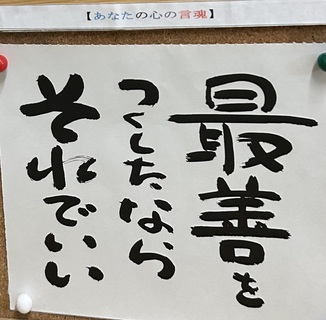 【あなたの心の言魂】
最善を
つくしたなら
それでいい